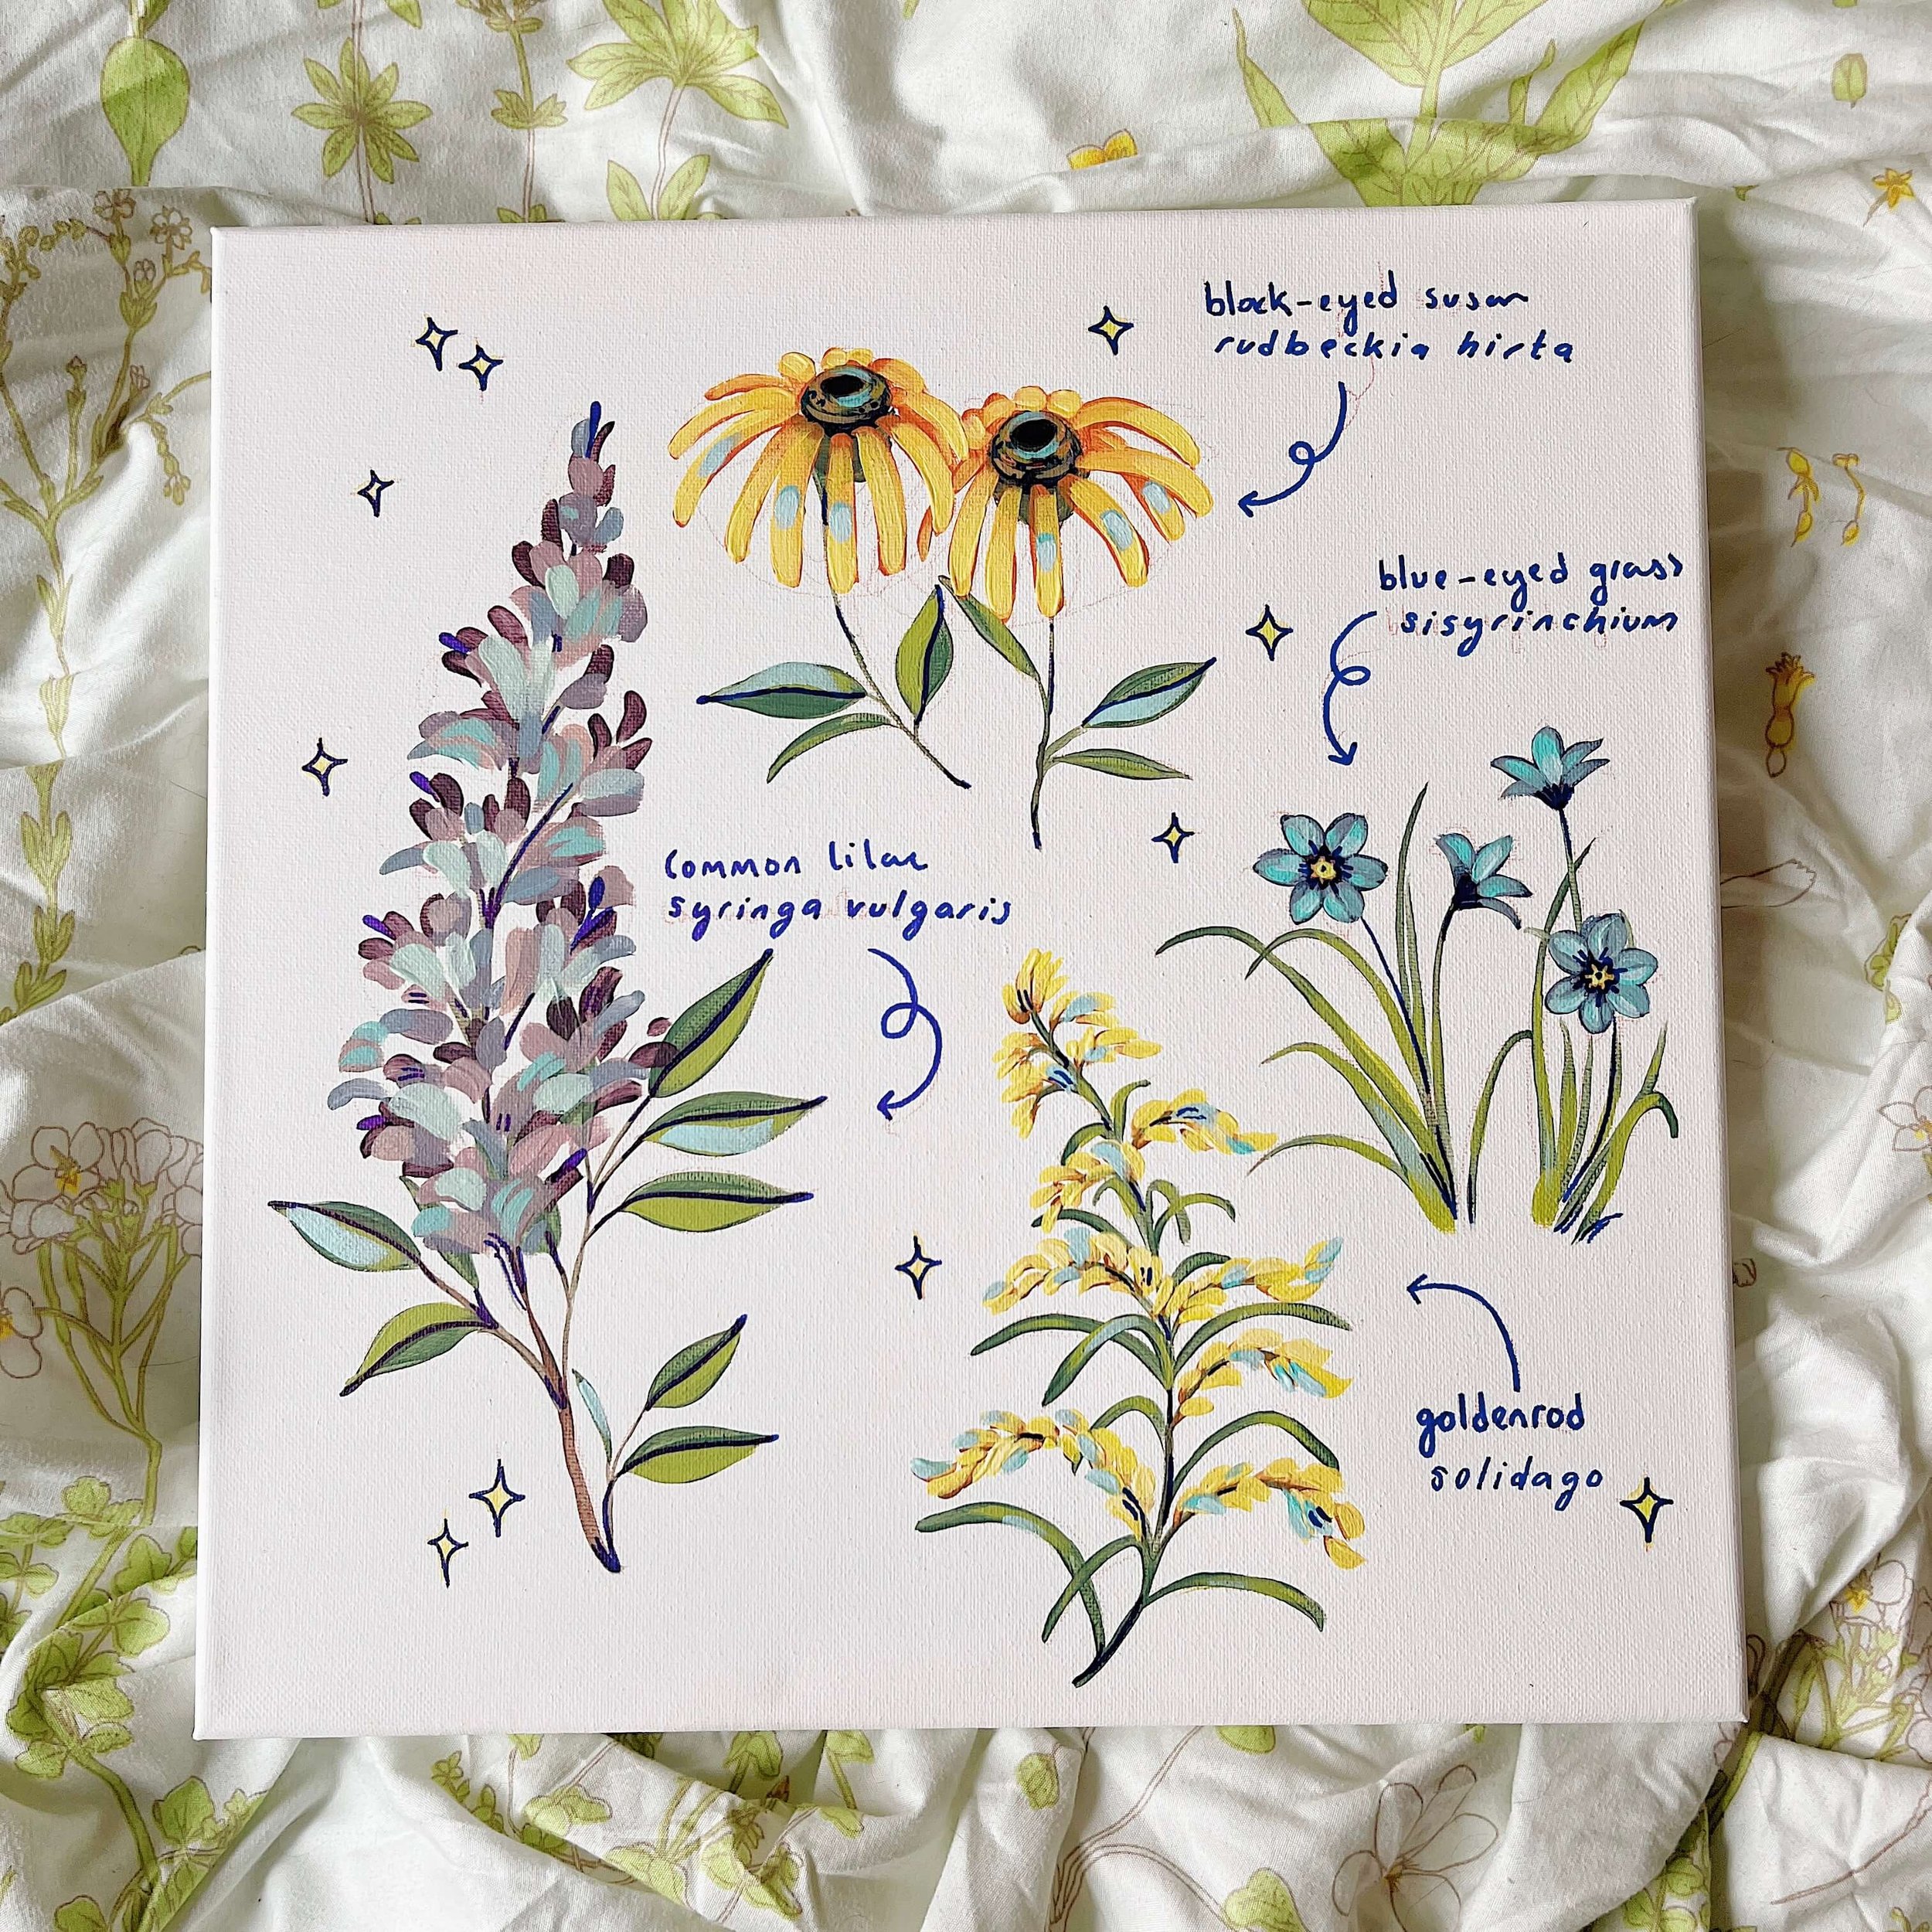 black-eyed susan
rudbeckia hirta
blue-eyed grass
sisyrinchium
common lilac
syringa vulgaris
goldenrod
solidago